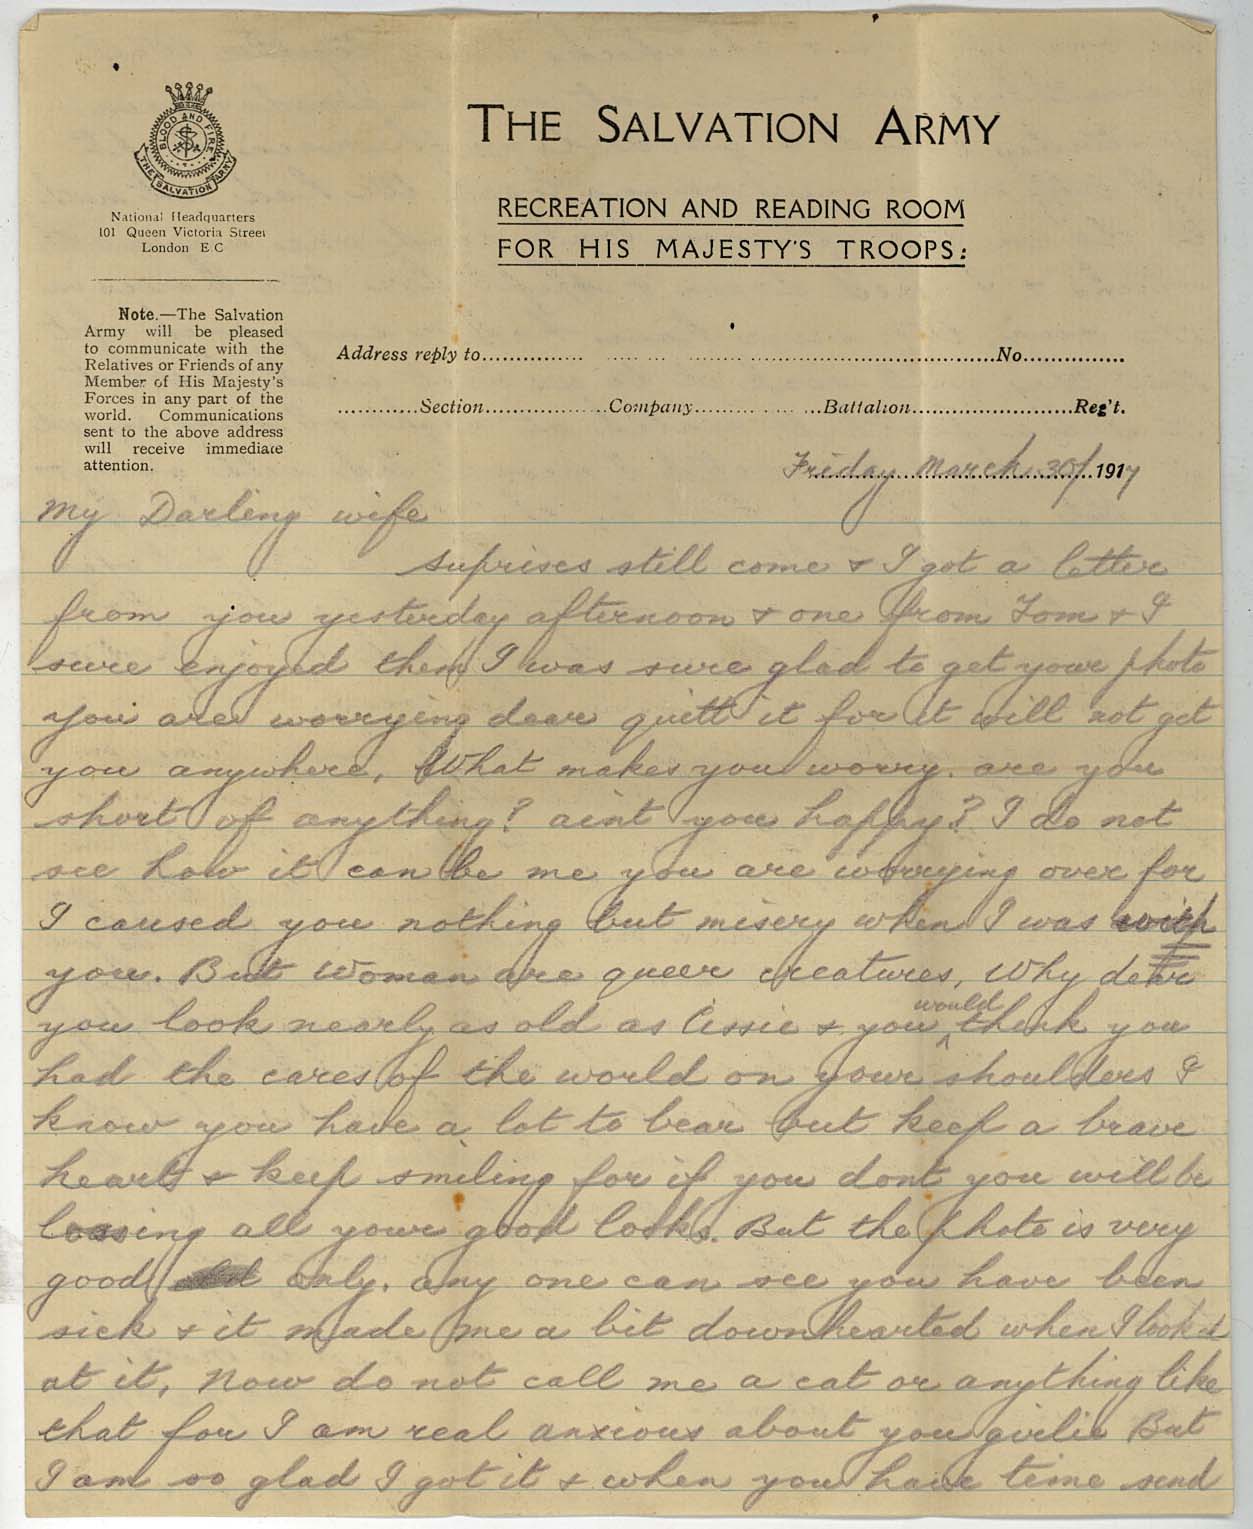 THE SALVATION ARMY
RECREATION AND READING ROOM
FOR HIS MAJESTY'S TROOPS:
BLOOD AND FIRE
THE SALVATION ARMY
National Headquarters
101 Queen Victoria Street
London E C
Note.—The Salvation
Army will be pleased
to communicate with the
Relatives or Friends of any
Member of His Majesty's
Forces in any part of the
world. Communications
sent to the above address
will receive immediate
attention.
Address reply to.............................................No...............
............Section..................Company..................Battalion........................Reg't.
Friday March 30/ 1917
My Darling wife
suprises still come & I got a letter
from you yesterday afternoon & one from Tom & I
sure enjoyed them I was sure glad to get your photo
you are worrying dear quitt it for it will not get
you anywhere, What makes you worry. are you
short of anything? aint you happy? I do not
see how it can be me you are worrying over for
I caused you nothing but misery when I was with
you. But Woman are queer creatures, Why dear
you look nearly as old as Cissie & you would think you
had the cares of the world on your shoulders I
know you have a lot to bear but keep a brave
heart & keep smiling for if you dont you will be
loosing all your good looks. But the photo is very
good only. any one can see you have been
sick & it made me a bit downhearted when I look
at it, Now do not call me a cat or anything like
that for I am real anxious about you girlie But
I am so glad I got it & when you have time send